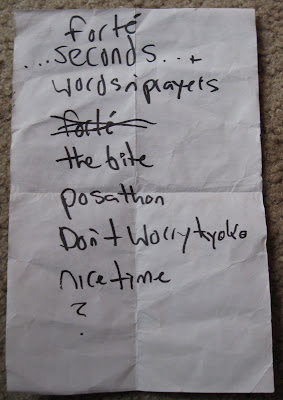 forté
...seconds...+
words n prayers
forté
the bite
posathon
Don't Worry kyoko
nice time
?